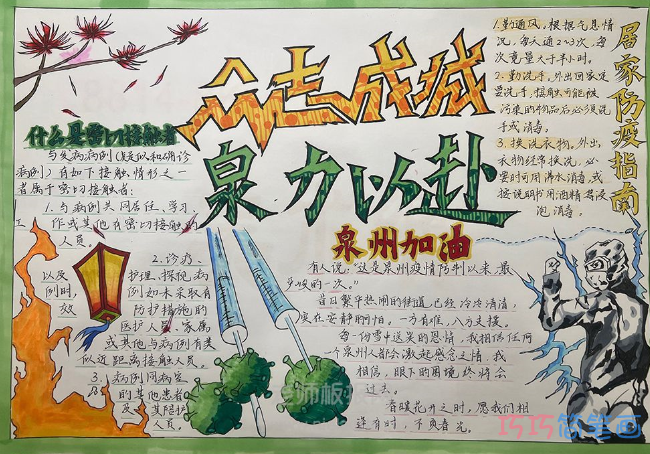 众志成城
泉力以赴
什么是密切接触者
与发病病例(疑似和确诊
病例)有如下接触情形之一
者属于密切接触者:
1.与病例共同居住、学习、
工作或其他有密切接触的
人员。
2.诊疗、
护理、探视病
例时未采取有
效防护措施的
医护人员、家属
或其他与病例有类
似近距离接触人员。
3.病例同病室
的其他患者
及其陪护
人员
以及
泉州加油
有人说,“这是泉州疫情防控以来,最
的一次。”
昔日繁华热闹的街道,已经冷冷清清,
实在安静的可怕。一方有难,八方支援。
每一份雪中送炭的恩情,我相信任何
一个泉州人都会激起感念之情。我
相信,眼下的困境终将会
过去。
春暖花开之时,愿我们相
逢有时,不负春光。
居家防疫指南
1.勤通风,根据气息情
况,每天通2~3次,每
次竟量大于半小时。
2.勤洗手,外出回家走
要洗手,接触可能被
污染的物品后必须洗
手或消毒。
3.换洗衣物,外出
衣物经常换洗,必
要时可用沸水消毒,或
按说明书用酒精
泡消毒。
师板报
巧巧简笔画